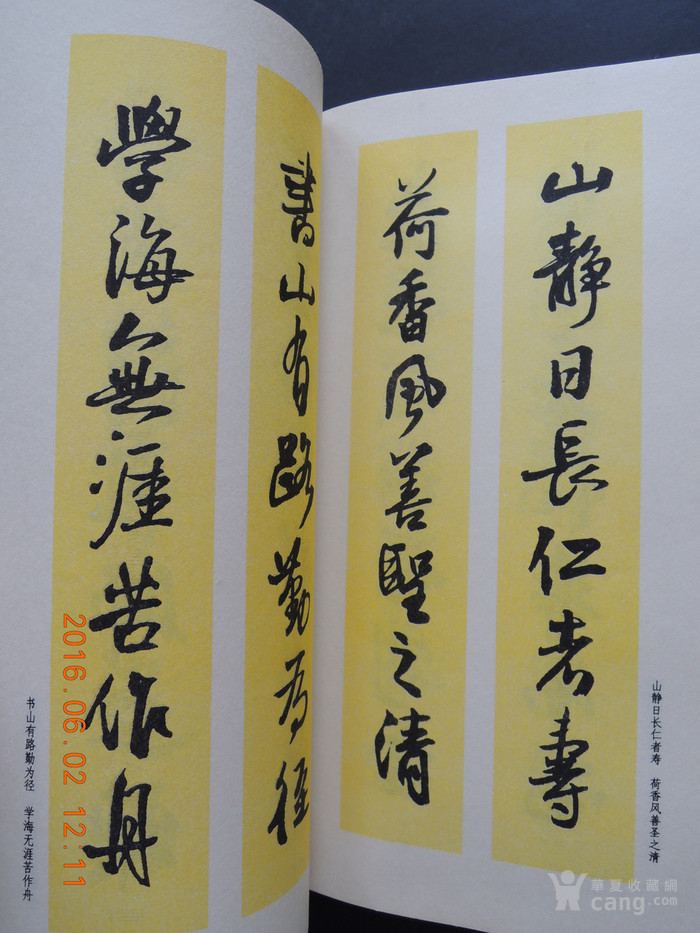 山靜日長仁者壽
荷香風善聖之清
山静日长仁者寿　荷香风善圣之清
書山有路勤為徑
學海無涯苦作舟
书山有路勤为径　学海无涯苦作舟
2016.06.02 12:11
華夏收藏網
cang.com